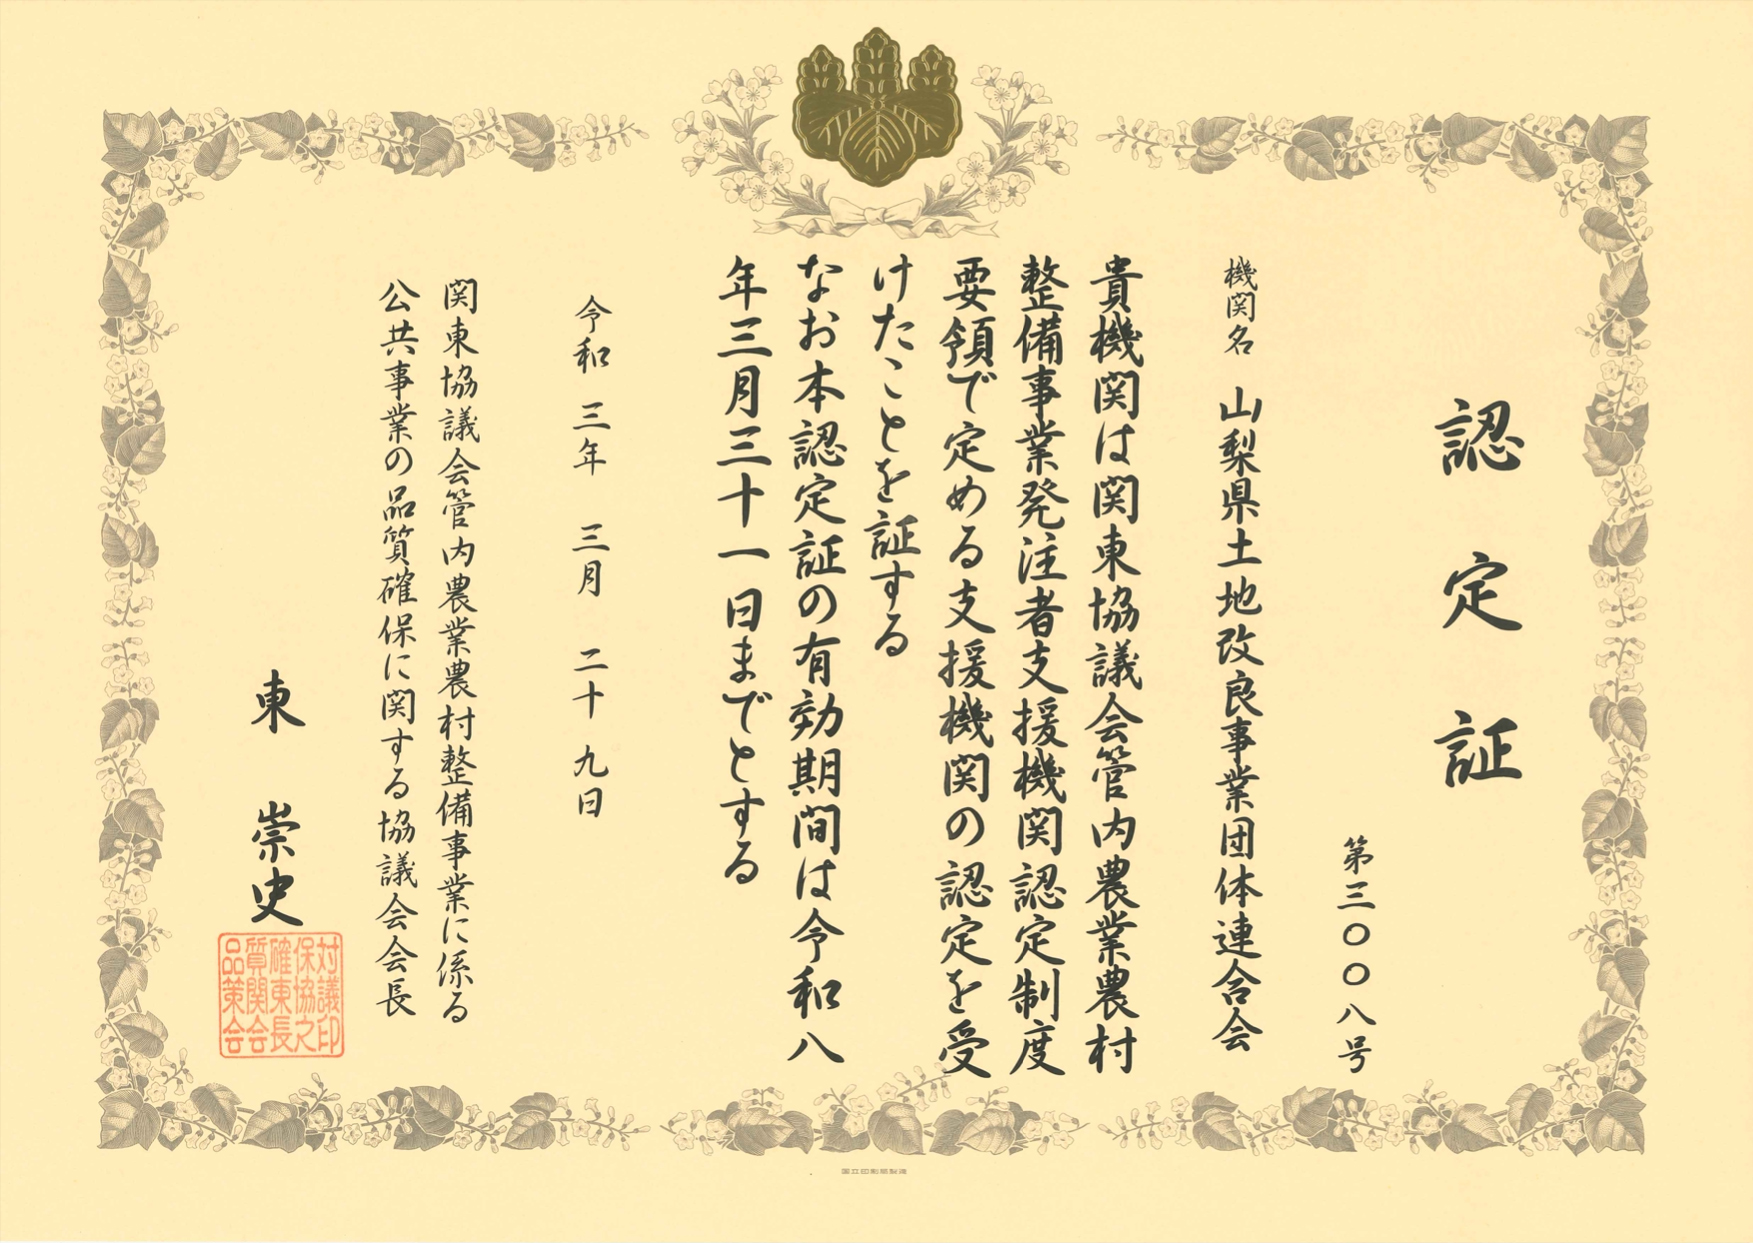 認定証
第三〇〇八号
機関名 山梨県土地改良事業団体連合会
貴機関は関東協議会管内農業農村
整備事業発注者支援機関認定制度
要領で定める支援機関の認定を受
けたことを証する
なお本認定証の有効期間は令和八
年三月三十一日までとする
令和 三年 三月 二十 九日
関東協議会管内農業農村整備事業に係る
公共事業の品質確保に関する協議会会長
東 崇史
対議印
保協之
確東長
質関会
品策会
国立印刷局製造